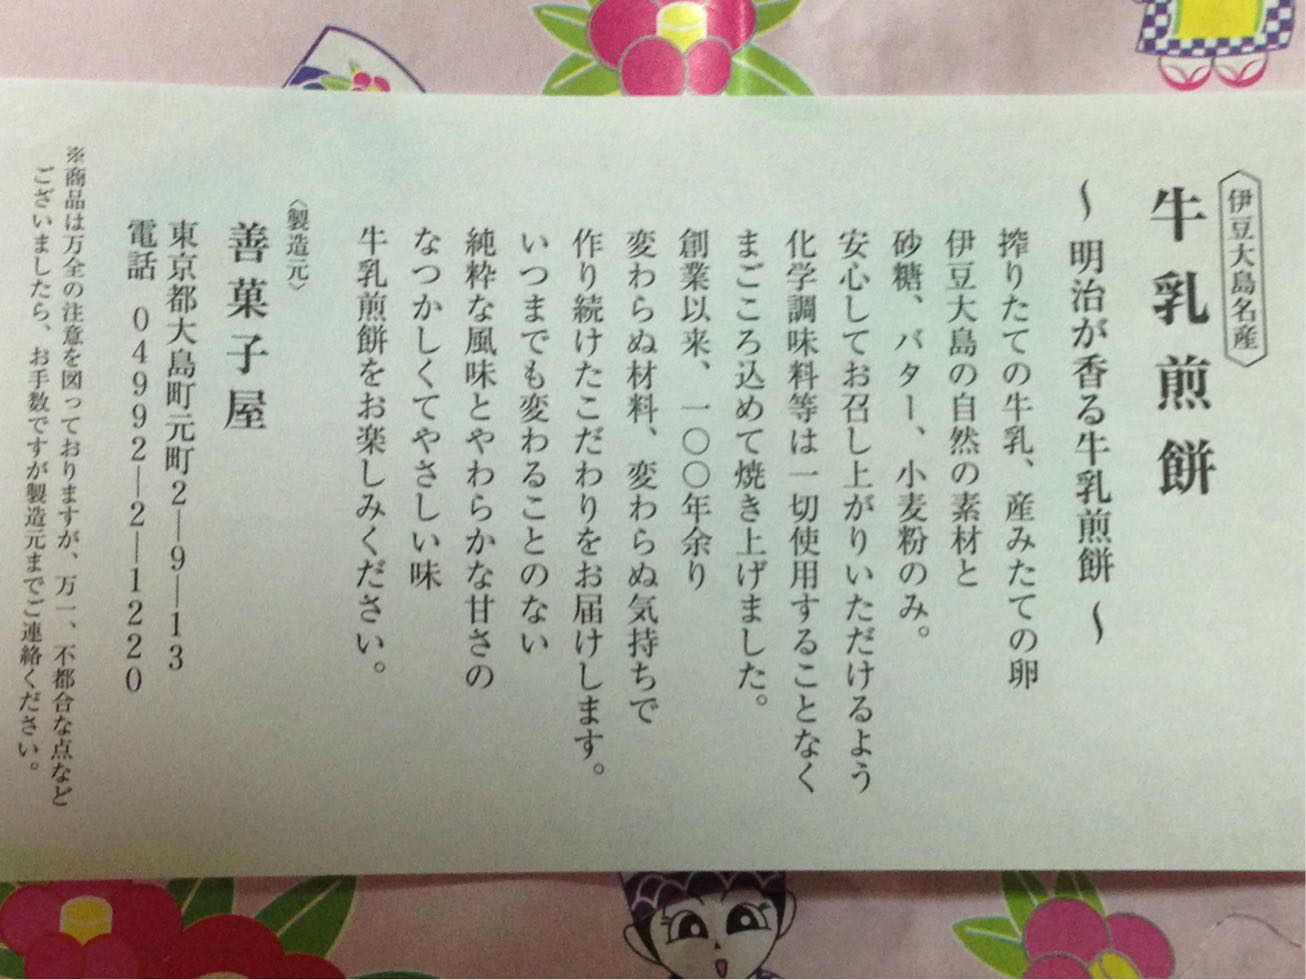 伊豆大島名産
牛乳煎餅
〜 明治が香る牛乳煎餅 〜
搾りたての牛乳、産みたての卵
伊豆大島の自然の素材と
砂糖、バター、小麦粉のみ。
安心してお召し上がりいただけるよう
化学調味料等は一切使用することなく
まごころ込めて焼き上げました。
創業以来、一〇〇年余り
変わらぬ材料、変わらぬ気持ちで
作り続けたこだわりをお届けします。
いつまでも変わることのない
純粋な風味とやわらかな甘さの
なつかしくてやさしい味
牛乳煎餅をお楽しみください。
〈製造元〉
善菓子屋
東京都大島町元町2―9―13
電話 04992―2―1220
※商品は万全の注意を図っておりますが、万一、不都合な点など
ございましたら、お手数ですが製造元までご連絡ください。